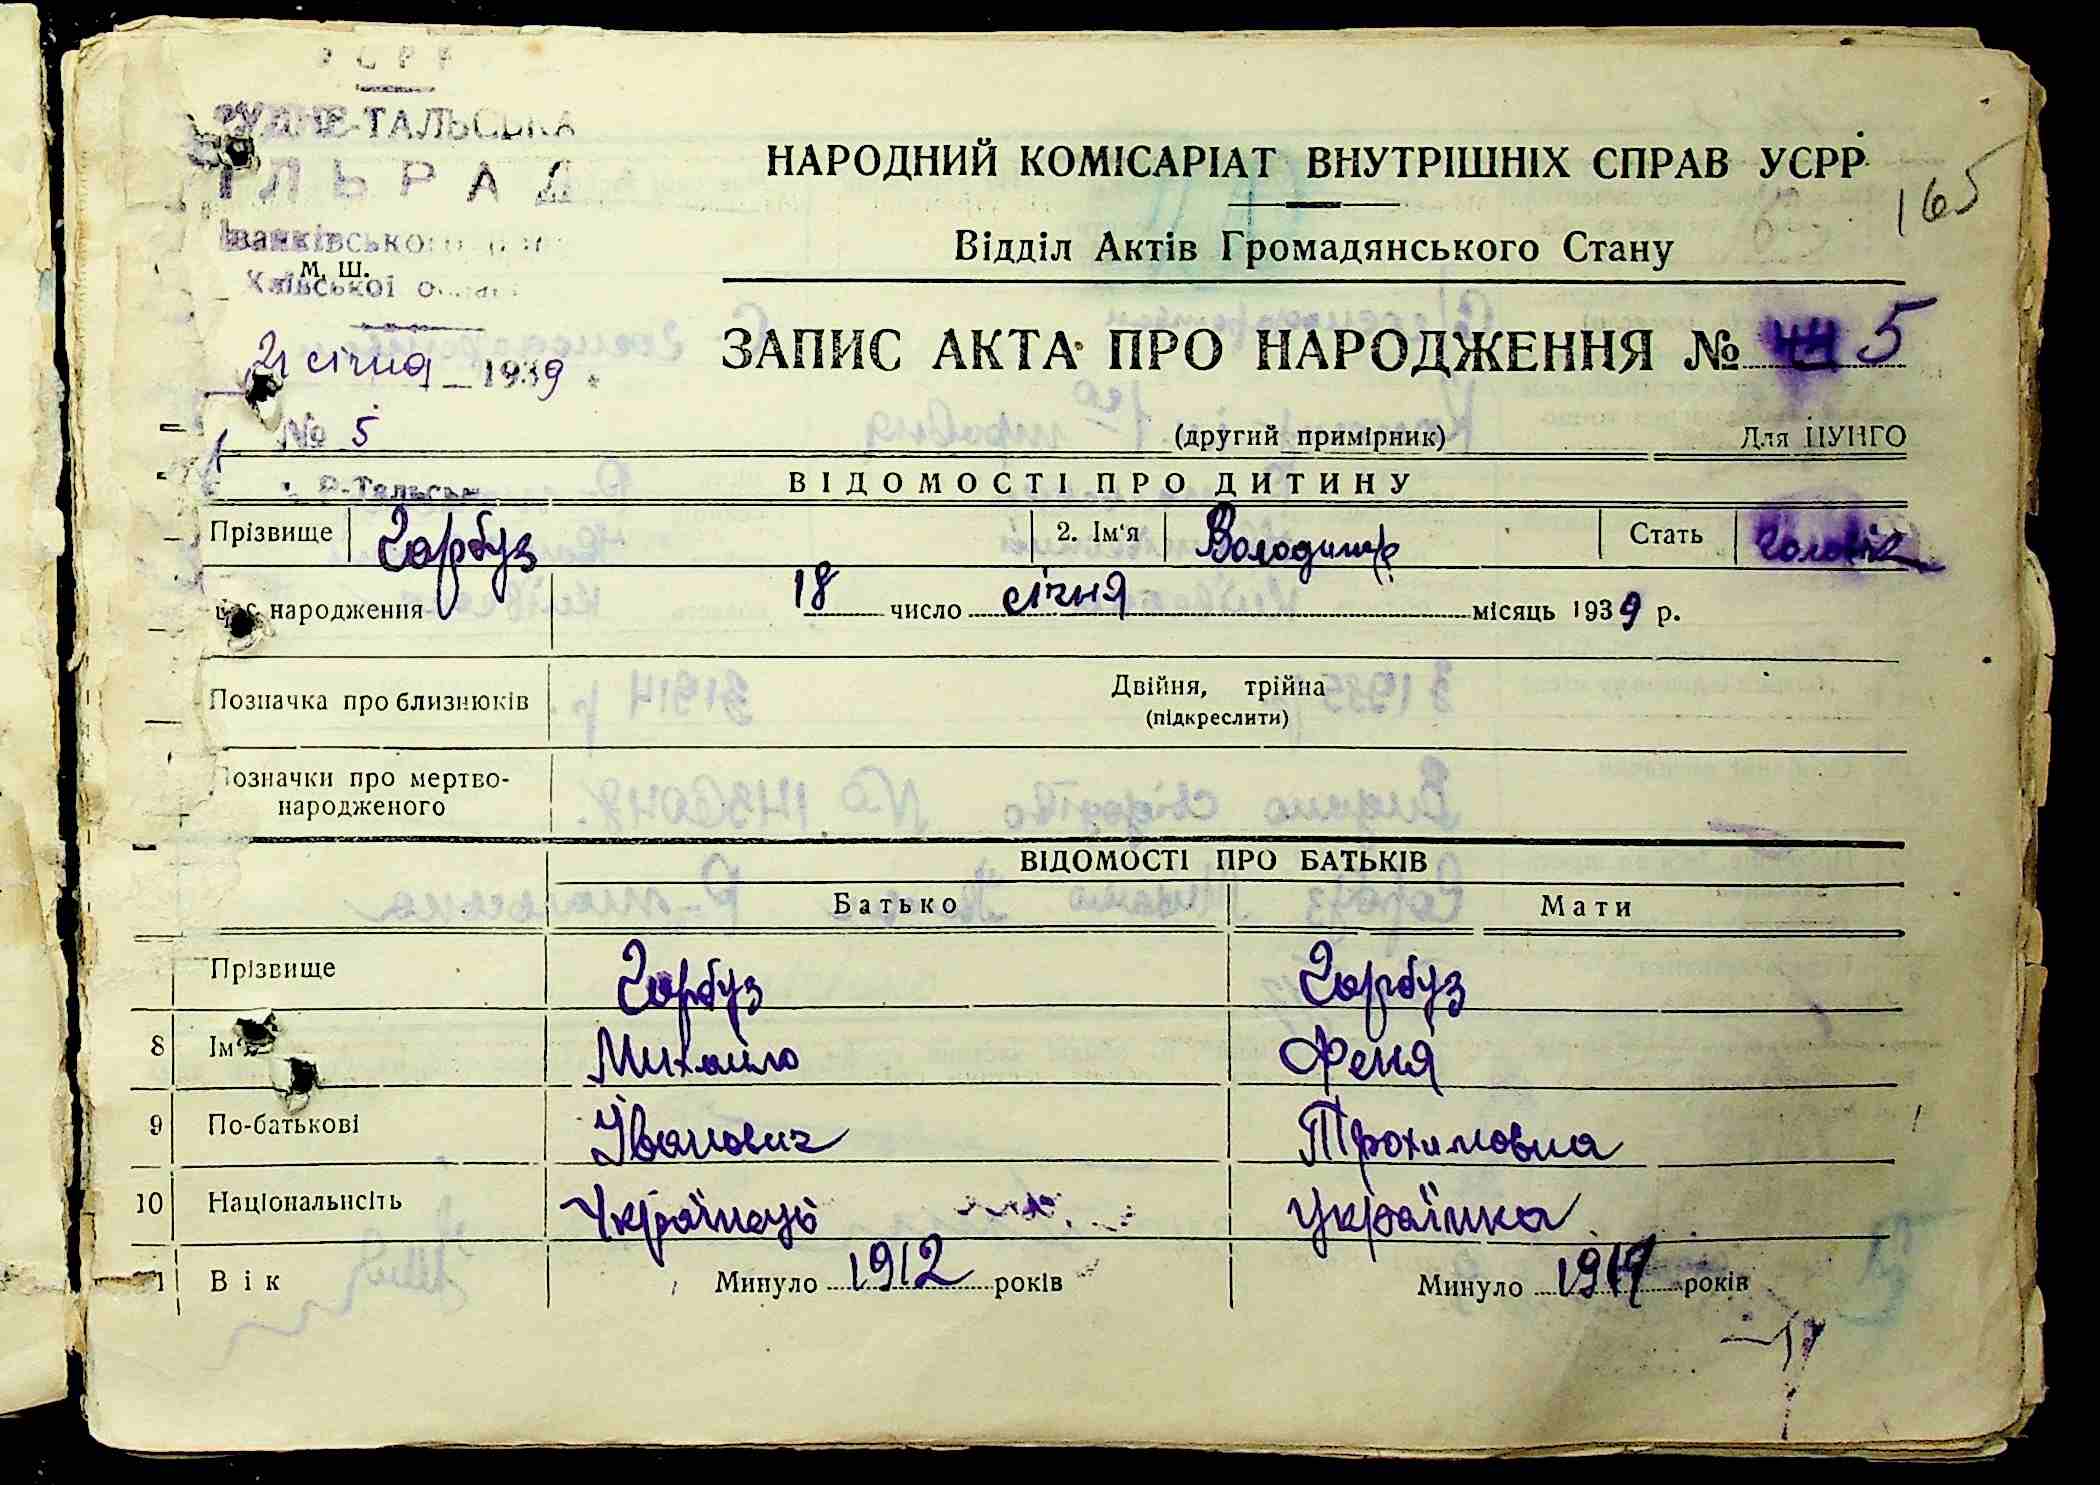 УСРР
РУДНЕ-ТАЛЬСЬКА
ІЛЬРАД
Іванківського
м. ш.
Київської
21 січня 1939
№ 5
Р-Тальськ
НАРОДНИЙ КОМІСАРІАТ ВНУТРІШНІХ СПРАВ УСРР
165
Відділ Актів Громадянського Стану
ЗАПИС АКТА ПРО НАРОДЖЕННЯ № 44 5
(другий примірник) Для ЦУНГО
ВІДОМОСТІ ПРО ДИТИНУ
Прізвище Гарбуз 2. Ім'я Володимир Стать Чоловік
народження 18 число січня місяць 1939 р.
Позначка про близнюків Двійня, трійна
(підкреслити)
Позначки про мертво-
народженого
ВІДОМОСТІ ПРО БАТЬКІВ
Батько Мати
Прізвище Гарбуз Гарбуз
8 Ім'я Михайло Феня
9 По-батькові Іванович Трохимовна
10 Національність Українець Українка
Вік Минуло 1912 років Минуло 1914 років